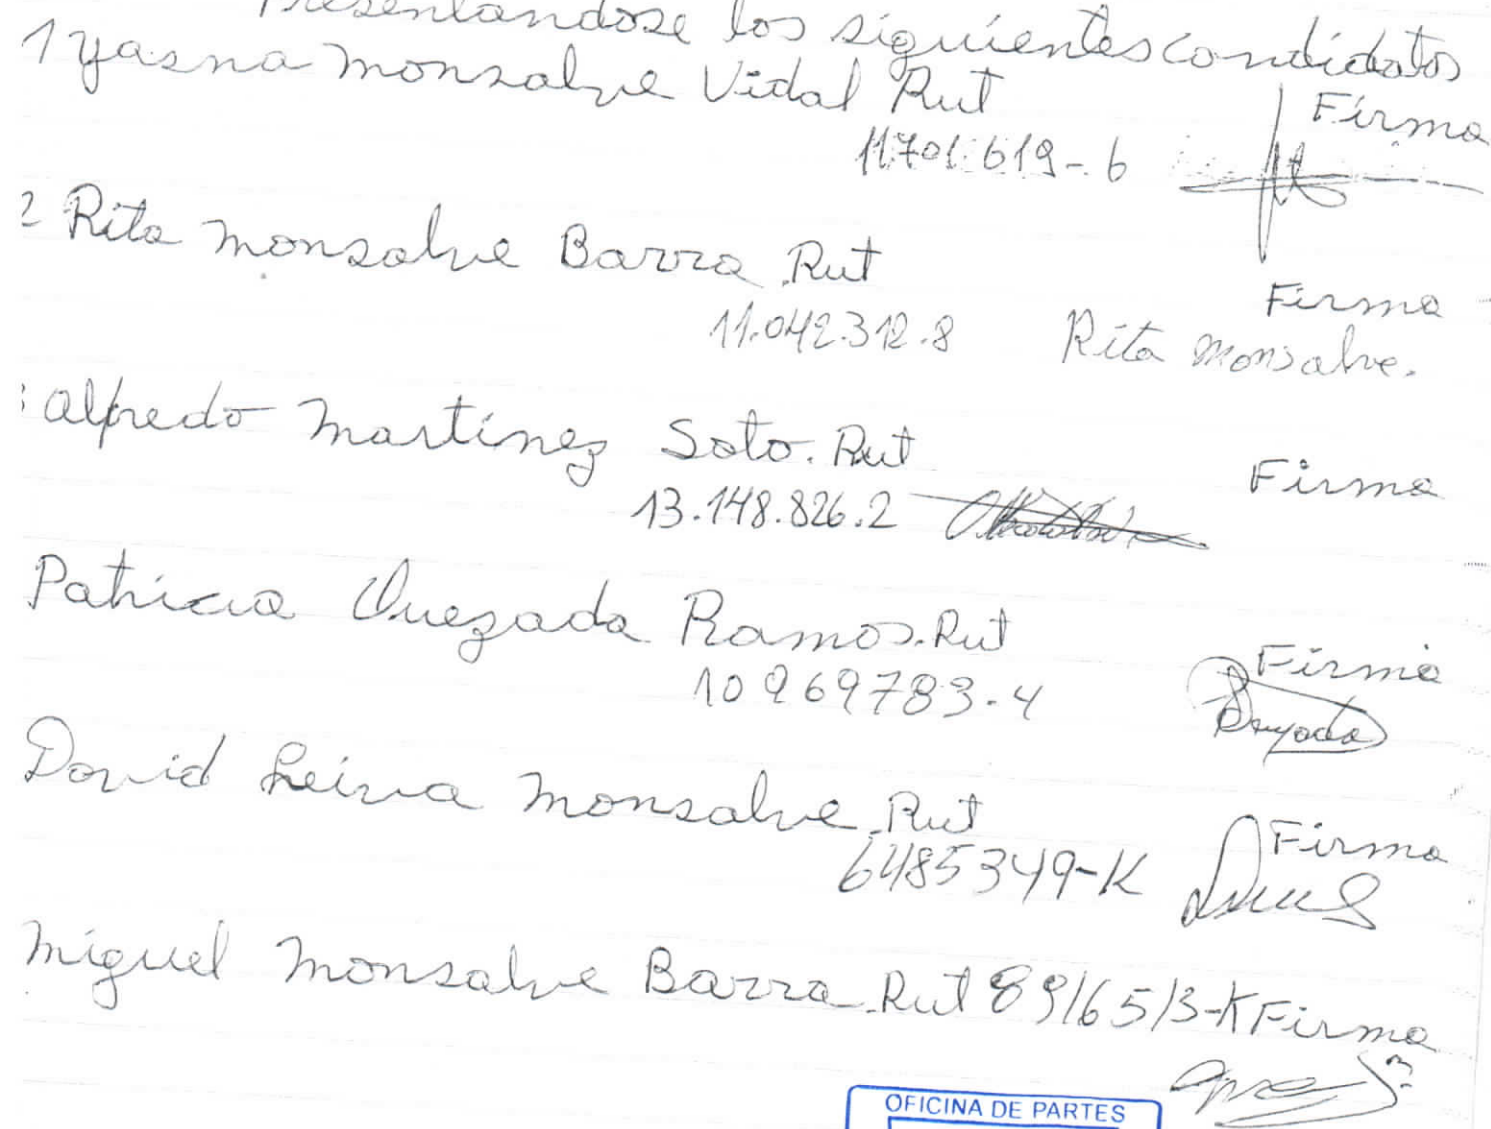 Presentandose los siguientes candidatos
1 Yasna Monsalve Vidal Rut Firma
11.701.619-6
2 Rita Monsalve Barra Rut Firma
11.042.312.8 Rita Monsalve.
Alfredo Martínez Soto. Rut Firma
13.148.826.2
Patricia Quezada Ramos. Rut Firma
10969783-4
David Leiva Monsalve. Rut Firma
6485349-K
Miguel Monsalve Barra. Rut 8916513-K Firma
OFICINA DE PARTES